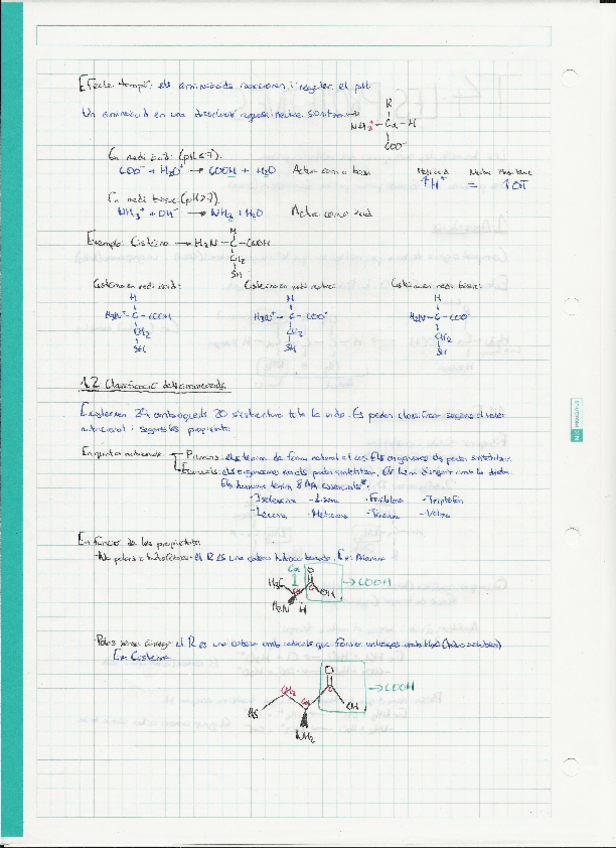 Efecte tampó: els aminoàcids reaccionen i regulen el pH.
Un aminoàcid en una dissolució aquosa neutra s'ionitza →
R
NH3+ – Cα – H
COO-
En medi àcid: (pH<7).
COO- + H3O+ → COOH + H2O Actua com a base
Medi àcid Neutre Medi bàsic
↑H+ = ↑OH-
En medi bàsic (pH>7).
NH3+ + OH- → NH2 + H2O Actua com a àcid
Exemple: Cisteïna → H2N – C – COOH
H
CH2
SH
Cisteïna en medi àcid: Cisteïna en medi neutre: Cisteïna en medi bàsic:
H H H
H3N+ – C – COOH H3N+ – C – COO- H2N – C – COO-
CH2 CH2 CH2
SH SH SH
1.2 Classificació dels aminoàcids
Existeixen 24 amb aquests 20 s'estructura tota la vida. Es poden classificar segons el valor
nutricional i segons les propietats.
En funció nutricional: Primaris: els tenim de forma natural al cos. Els organismes els poden sintetitzar.
Essencials: els organismes no els poden sintetitzar. Els hem d'ingerir amb la dieta.
Els humans tenim 8 AA essencials*.
·Isoleucina ·Lisina ·Fenilalanina ·Triptòfan
·Leucina ·Metionina ·Treonina ·Valina
En funció de les propietats:
·No polars o hidrofòbics: el R és una cadena hidrocarbonada. Ex: Alanina
Cα O
H3C CH C OH → COOH
H2N H
·Polars sense càrrega: el R és una cadena amb radicals que formen enllaços amb H2O (hidrosolubles)
Ex: Cisteïna
O
CH2 CH C → COOH
HS OH
NH2